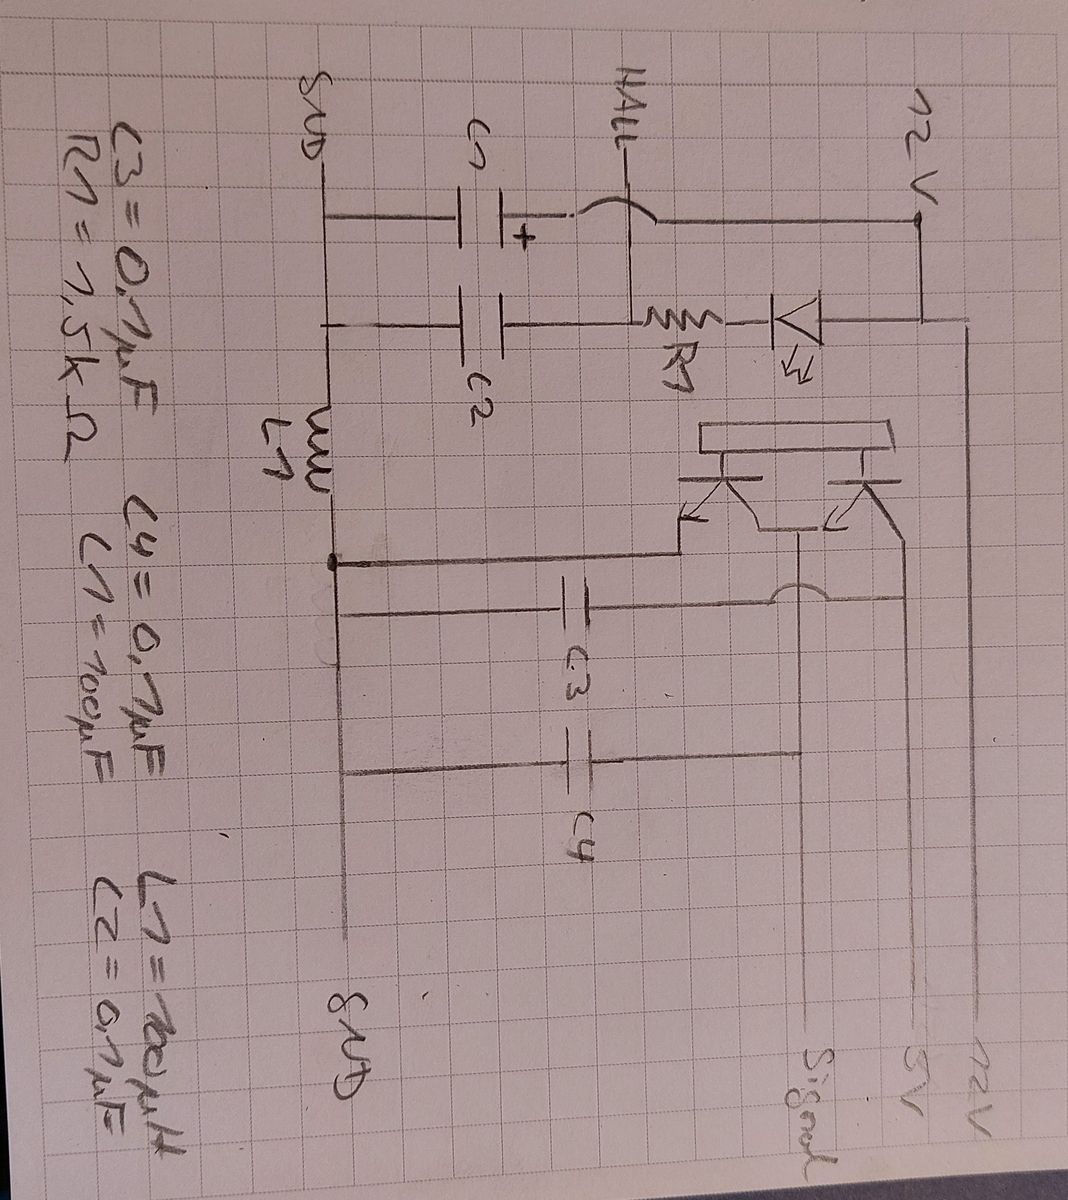 12V
12V
5V
HALL
R1
Signal
C1
C2
C3
C4
GND
L1
GND
C3 = 0,1µF
C4 = 0,1µF
L1 = 100µH
R1 = 1,5kΩ
C1 = 100µF
C2 = 0,1µF